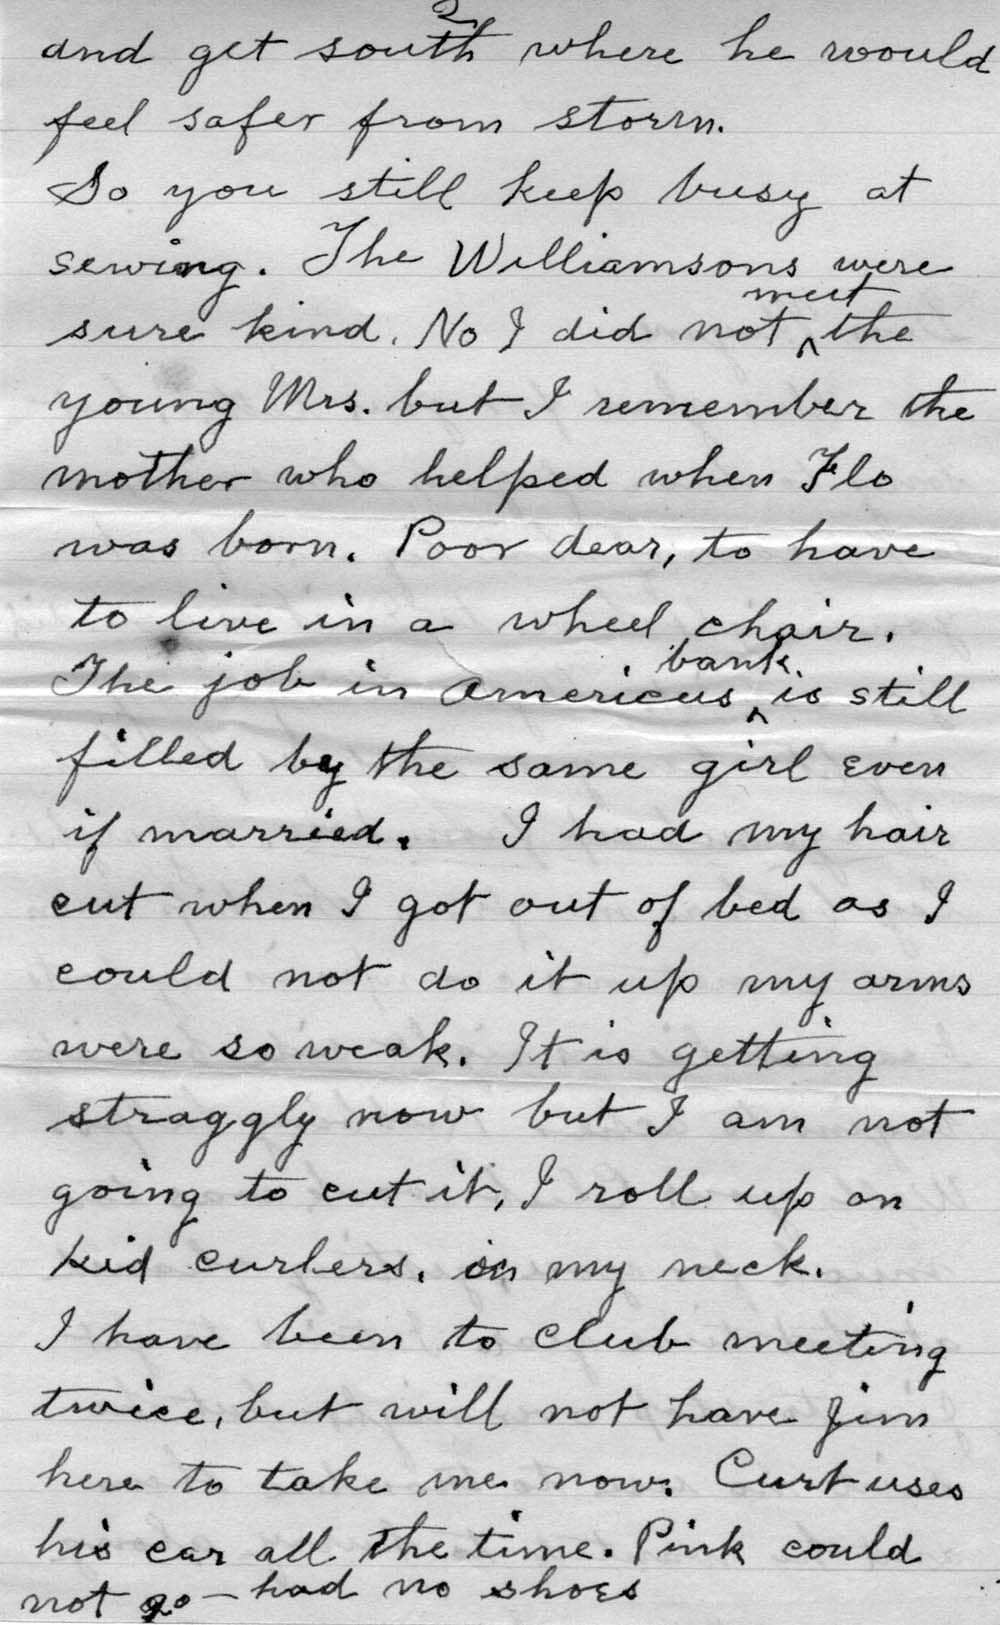 2
and get south where he would
feel safer from storm.
So you still keep busy at
sewing. The Williamsons were
sure kind. No I did not ^meet the
young Mrs. but I remember the
mother who helped when Flo
was born. Poor dear, to have
to live in a wheel chair.
The job in Americus ^bank is still
filled by the same girl even
if married. I had my hair
cut when I got out of bed as I
could not do it up my arms
were so weak. It is getting
straggly now but I am not
going to cut it, I roll up on
kid curlers. on my neck.
I have been to club meeting
twice, but will not have Jim
here to take me now. Curt uses
his car all the time. Pink could
not go – had no shoes